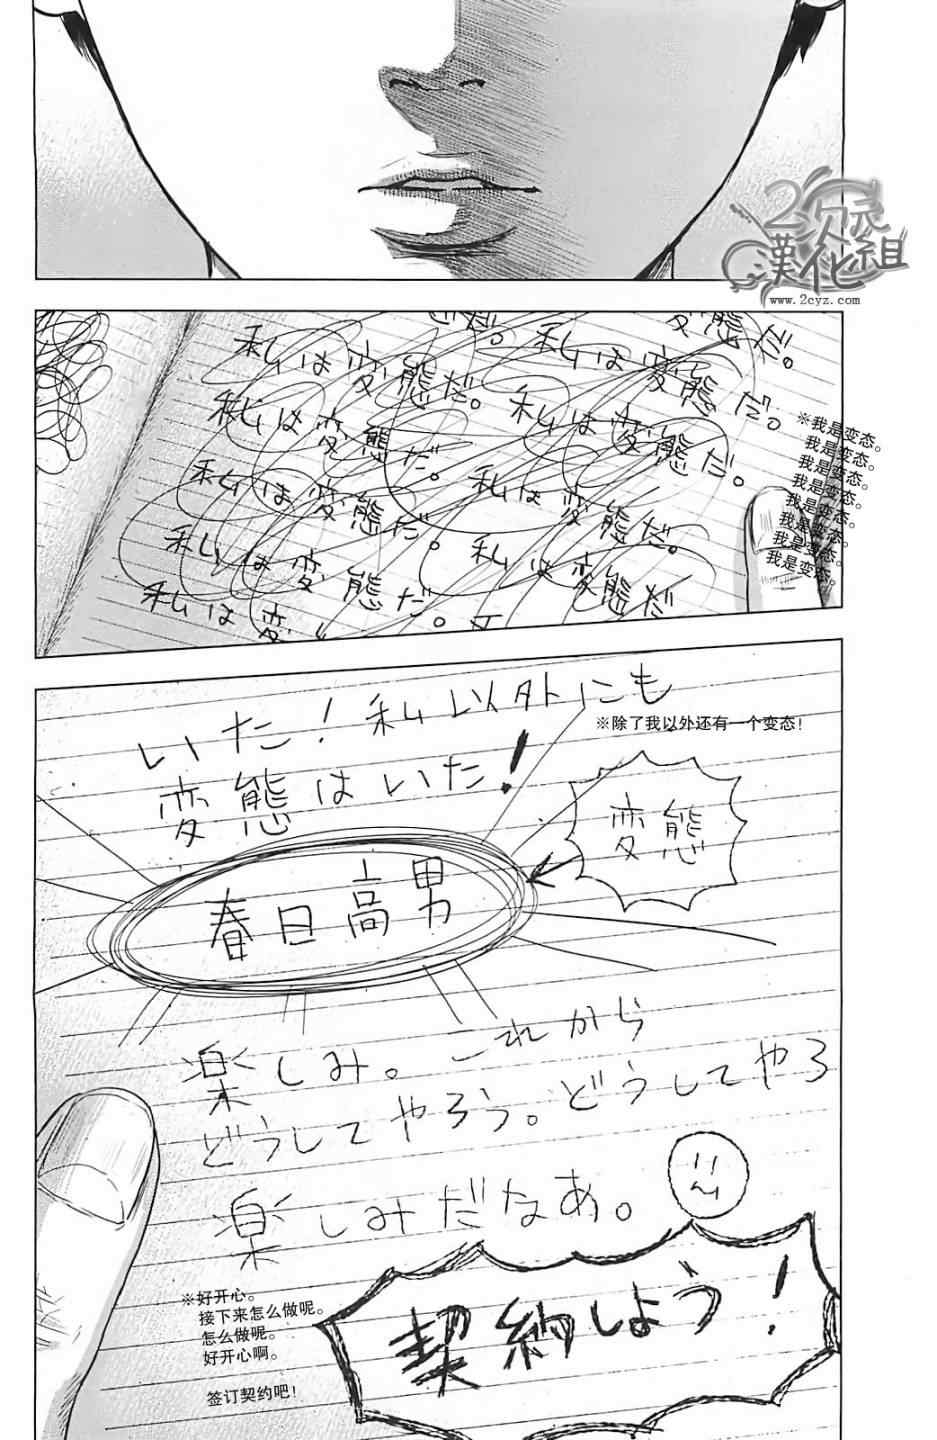 2次元
漢化組
www.2cyz.com
だ。
態だ。
私は変態だ。私は変態だ。
私は変態だ。私は変態だ。
私は変態だ。私は変態だ。
私は変態だ。私は変態だ
私は変
※我是变态。
我是变态。
我是变态。
我是变态。
我是变态。
我是变态。
我是变态。
我是变态。
いた！私以外にも
変態はいた！
※除了我以外还有一个变态！
変態
春日高男
楽しみ。これから
どうしてやろう。どうしてやろ
楽しみだなあ。
※好开心。
接下来怎么做呢。
怎么做呢。
好开心啊。
签订契约吧！
契約しよう！